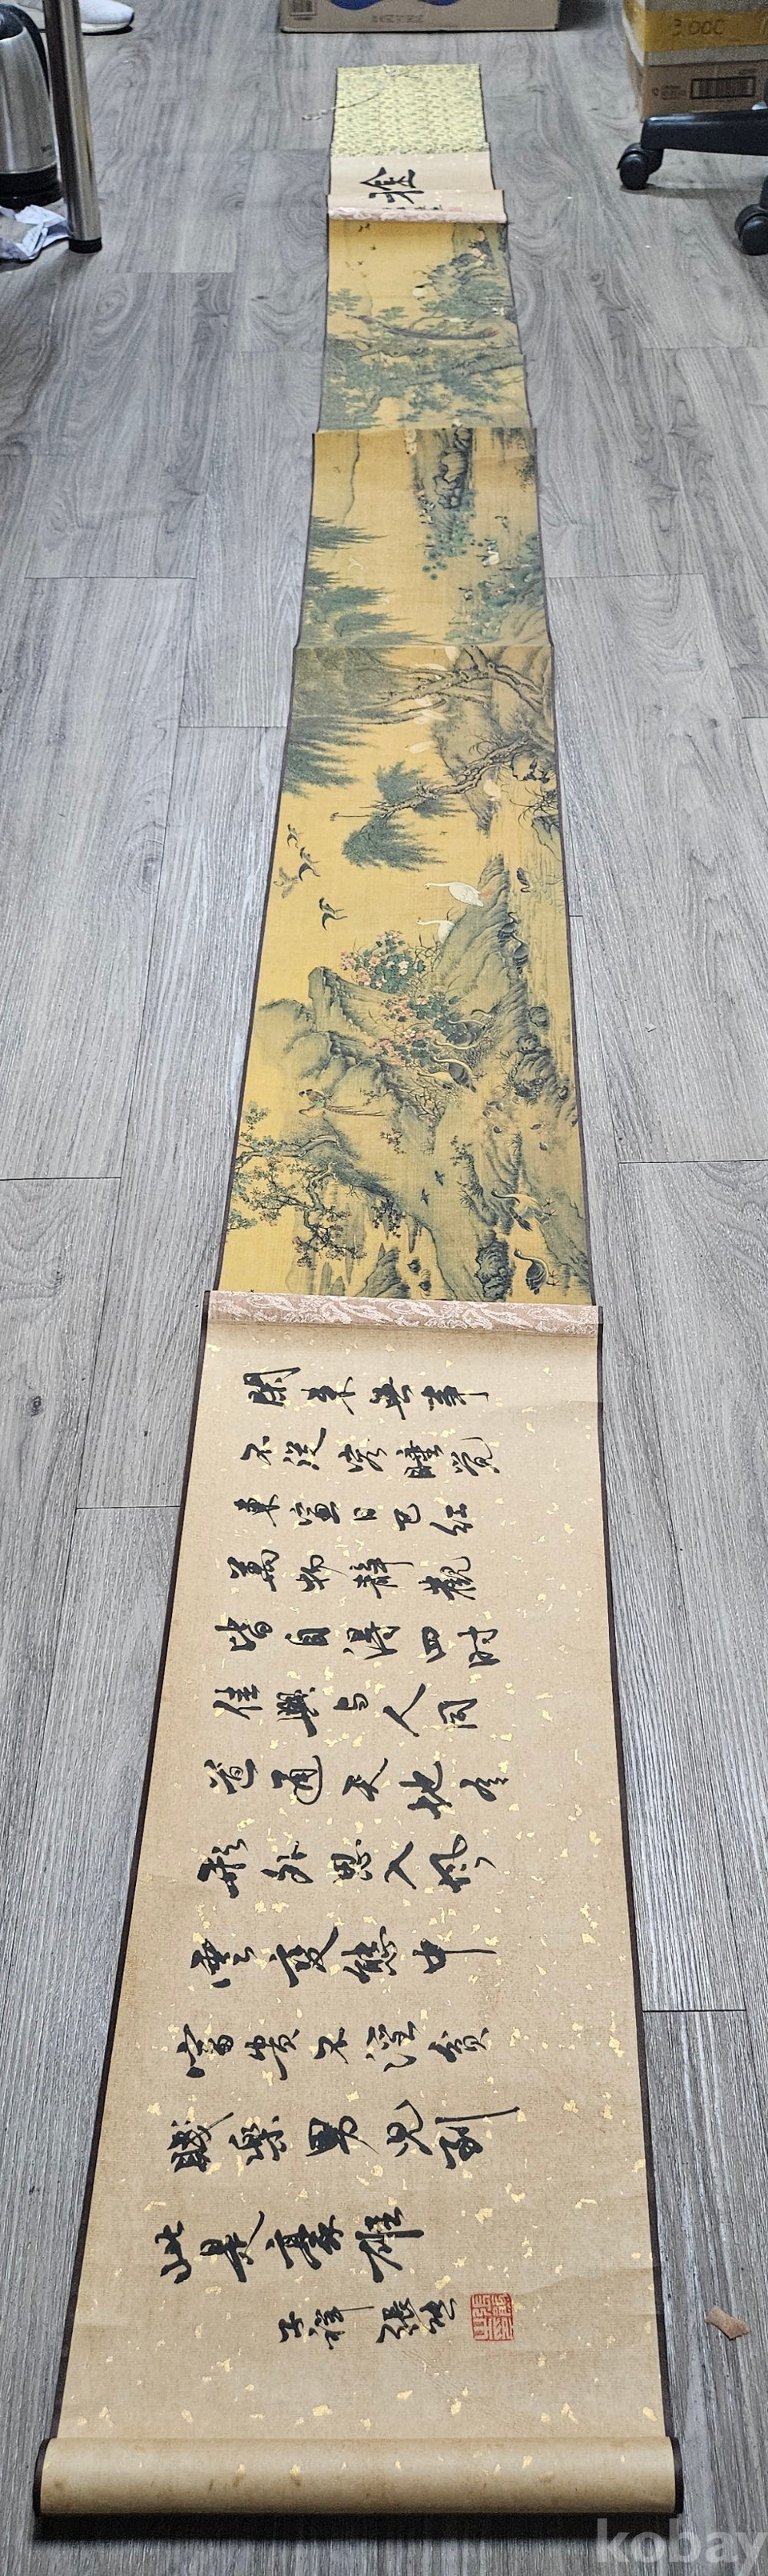 3,000
閑來無事
不從容睡覺
東窗日已紅
萬物靜觀
皆自得四時
佳興与人同
道通天地有
形外思入風
雲變態中
富貴不淫貧
賤樂男兒到
此是豪雄
子祥張熊
kobay